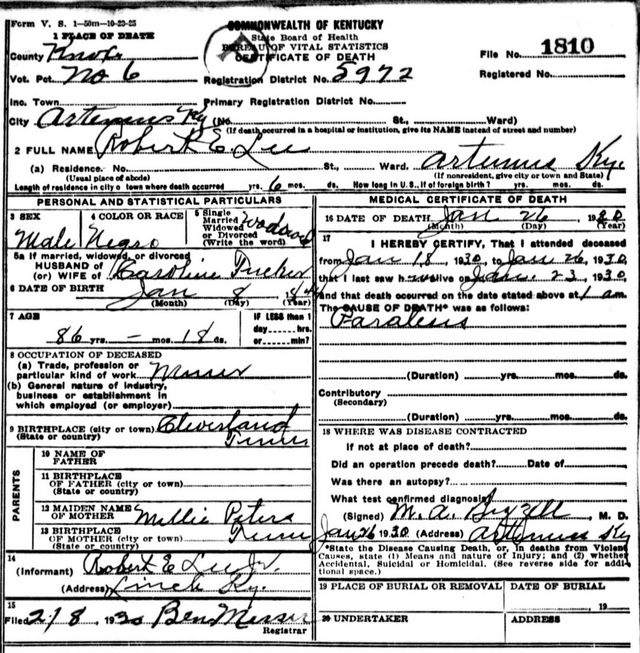 Form V. S. 1—50m—10-23-25
COMMONWEALTH OF KENTUCKY
State Board of Health
BUREAU OF VITAL STATISTICS
CERTIFICATE OF DEATH
1 PLACE OF DEATH
County Knox
File No. 1810
Vot. Pct. No 6
Registration District No. 5972
Registered No.
Inc. Town
Primary Registration District No.
City Artemus Ky (No. St., Ward)
(If death occurred in a hospital or institution, give its NAME instead of street and number)
2 FULL NAME Robert E. Lee
(a) Residence. No. St., Ward. Artemus Ky.
(Usual place of abode) (If nonresident, give city or town and State)
Length of residence in city o town where death occurred yrs. 6 mos. ds. How long in U. S., if of foreign birth? yrs. mos. ds.
PERSONAL AND STATISTICAL PARTICULARS
3 SEX Male
4 COLOR OR RACE Negro
5 Single
Married
Widowed
or Divorced
(Write the word)
5a If married, widowed, or divorced
HUSBAND of
(or) WIFE of Caroline Tucker
6 DATE OF BIRTH Jan 8
(Month) (Day) (Year)
7 AGE
86 yrs. — mos. 18 ds.
IF LESS than 1
day hrs.
or min.?
8 OCCUPATION OF DECEASED
(a) Trade, profession or
particular kind of work
(b) General nature of industry,
business or establishment in
which employed (or employer)
9 BIRTHPLACE (city or town)
(State or country) Tenn
PARENTS
10 NAME OF
FATHER
11 BIRTHPLACE
OF FATHER (city or town)
(State or country)
12 MAIDEN NAME
OF MOTHER Millie Peters
13 BIRTHPLACE
OF MOTHER (city or town) Tenn
(State or country)
14
(Informant) Robert E Lee Jr.
(Address) Lynch Ky.
15
Filed 2/8 1930 Ben
Registrar
MEDICAL CERTIFICATE OF DEATH
16 DATE OF DEATH Jan 26 1930
(Month) (Day) (Year)
17
I HEREBY CERTIFY, That I attended deceased
from Jan 18, 1930, to Jan 26, 1930,
that I last saw h alive on Jan 23, 1930,
and that death occurred on the date stated above at 1 am.
The CAUSE OF DEATH* was as follows:
Paralesis
(Duration) yrs. mos. ds.
Contributory
(Secondary)
(Duration) yrs. mos. ds.
18 WHERE WAS DISEASE CONTRACTED
if not at place of death?
Did an operation precede death? Date of
Was there an autopsy?
What test confirmed diagnosis?
(Signed) M. A. M. D.
Jan 26 1930 (Address) Artemus Ky
*State the Disease Causing Death, or, in deaths from Violent
Causes, state (1) Means and nature of Injury; and (2) whether
Accidental, Suicidal or Homicidal. (See reverse side for addi-
tional space.)
19 PLACE OF BURIAL OR REMOVAL
DATE OF BURIAL
19
20 UNDERTAKER
ADDRESS